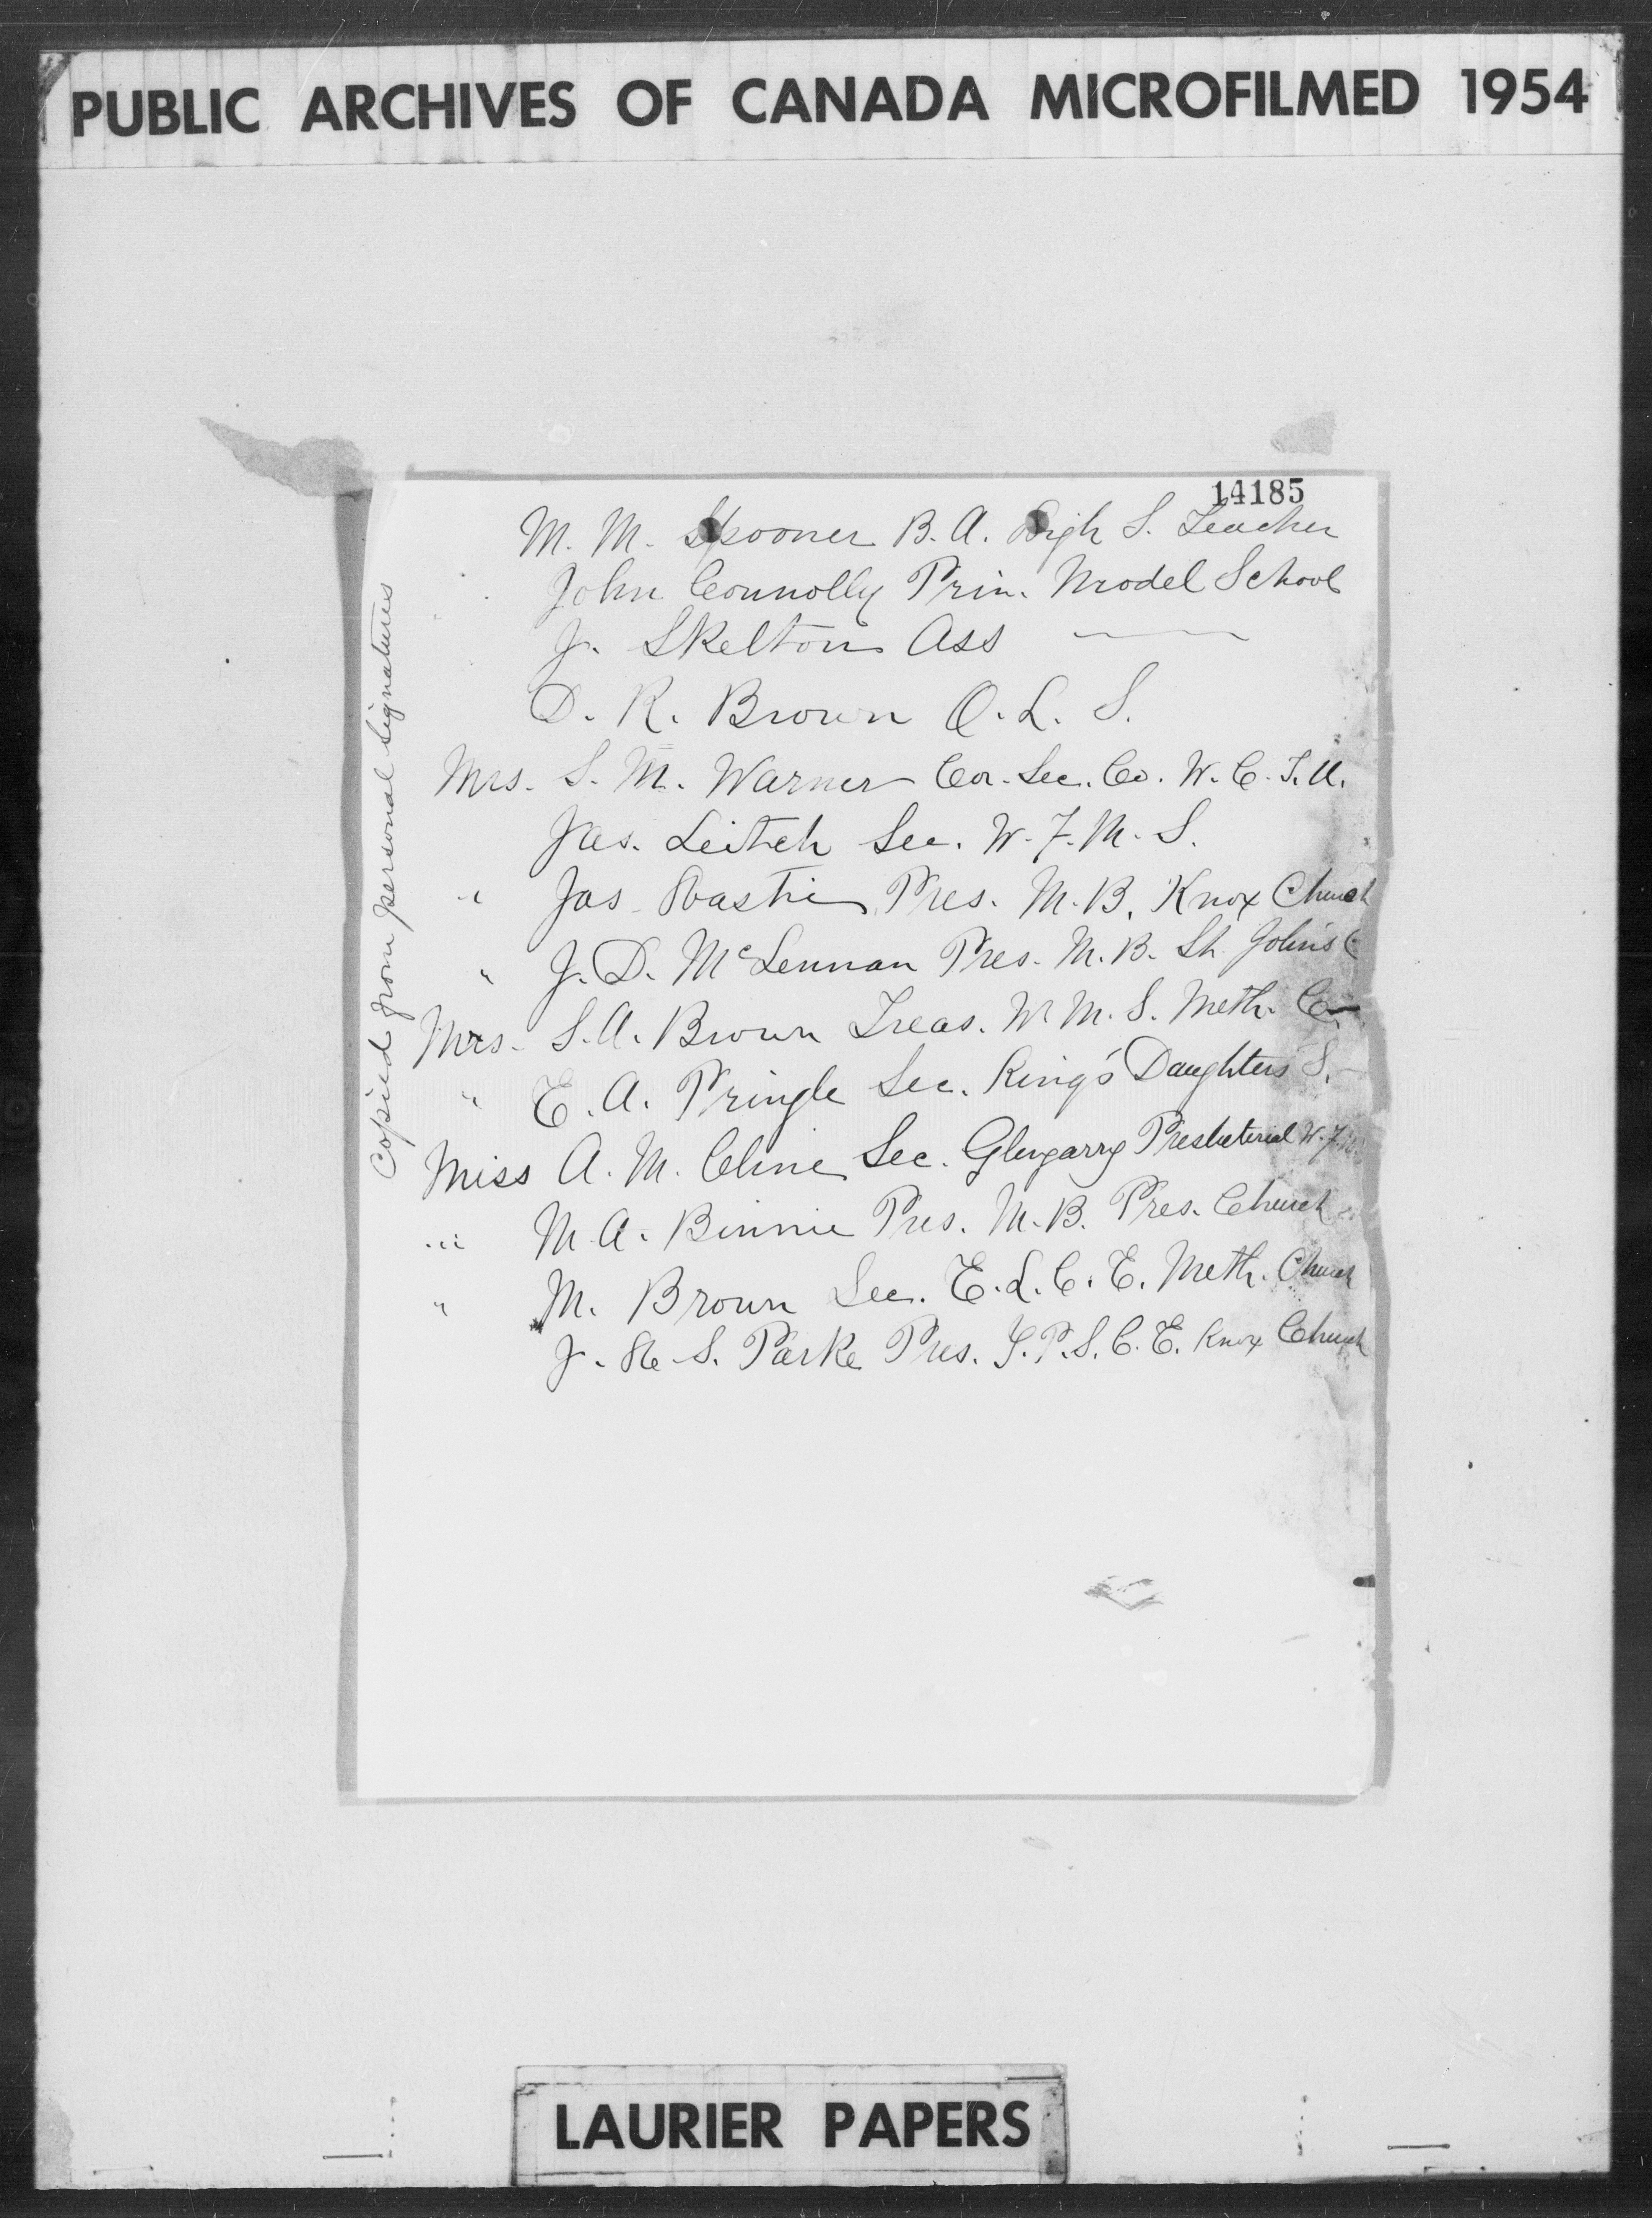 PUBLIC ARCHIVES OF CANADA MICROFILMED 1954
14185
M. M. Spooner B.A. High S. Teacher
John Connolly Prin. Model School
J. Skelton Ass —
D. R. Brown O. L. S.
Mrs. S. M. Warner Cor. Sec. Co. W. C. T. U.
Jas. Leitch Sec. W. F. M. S.
" Jas Pres. M. B. Knox Church
" J. D. McLennan Pres. M. B. St. John's C
Mrs. S. A. Brown Treas. W. M. S. Meth. C
" E. A. Pringle Sec. King's Daughters S.
Miss A. M. Cline Sec. Glengarry Presbeterial W. F.
" M. A. Binnie Pres. M. B. Pres. Church
" M. Brown Sec. E. L. C. E. Meth. Church
J. H. S. Parke Pres. Y. P. S. C. E. Knox Church
Copied from personal signatures
LAURIER PAPERS